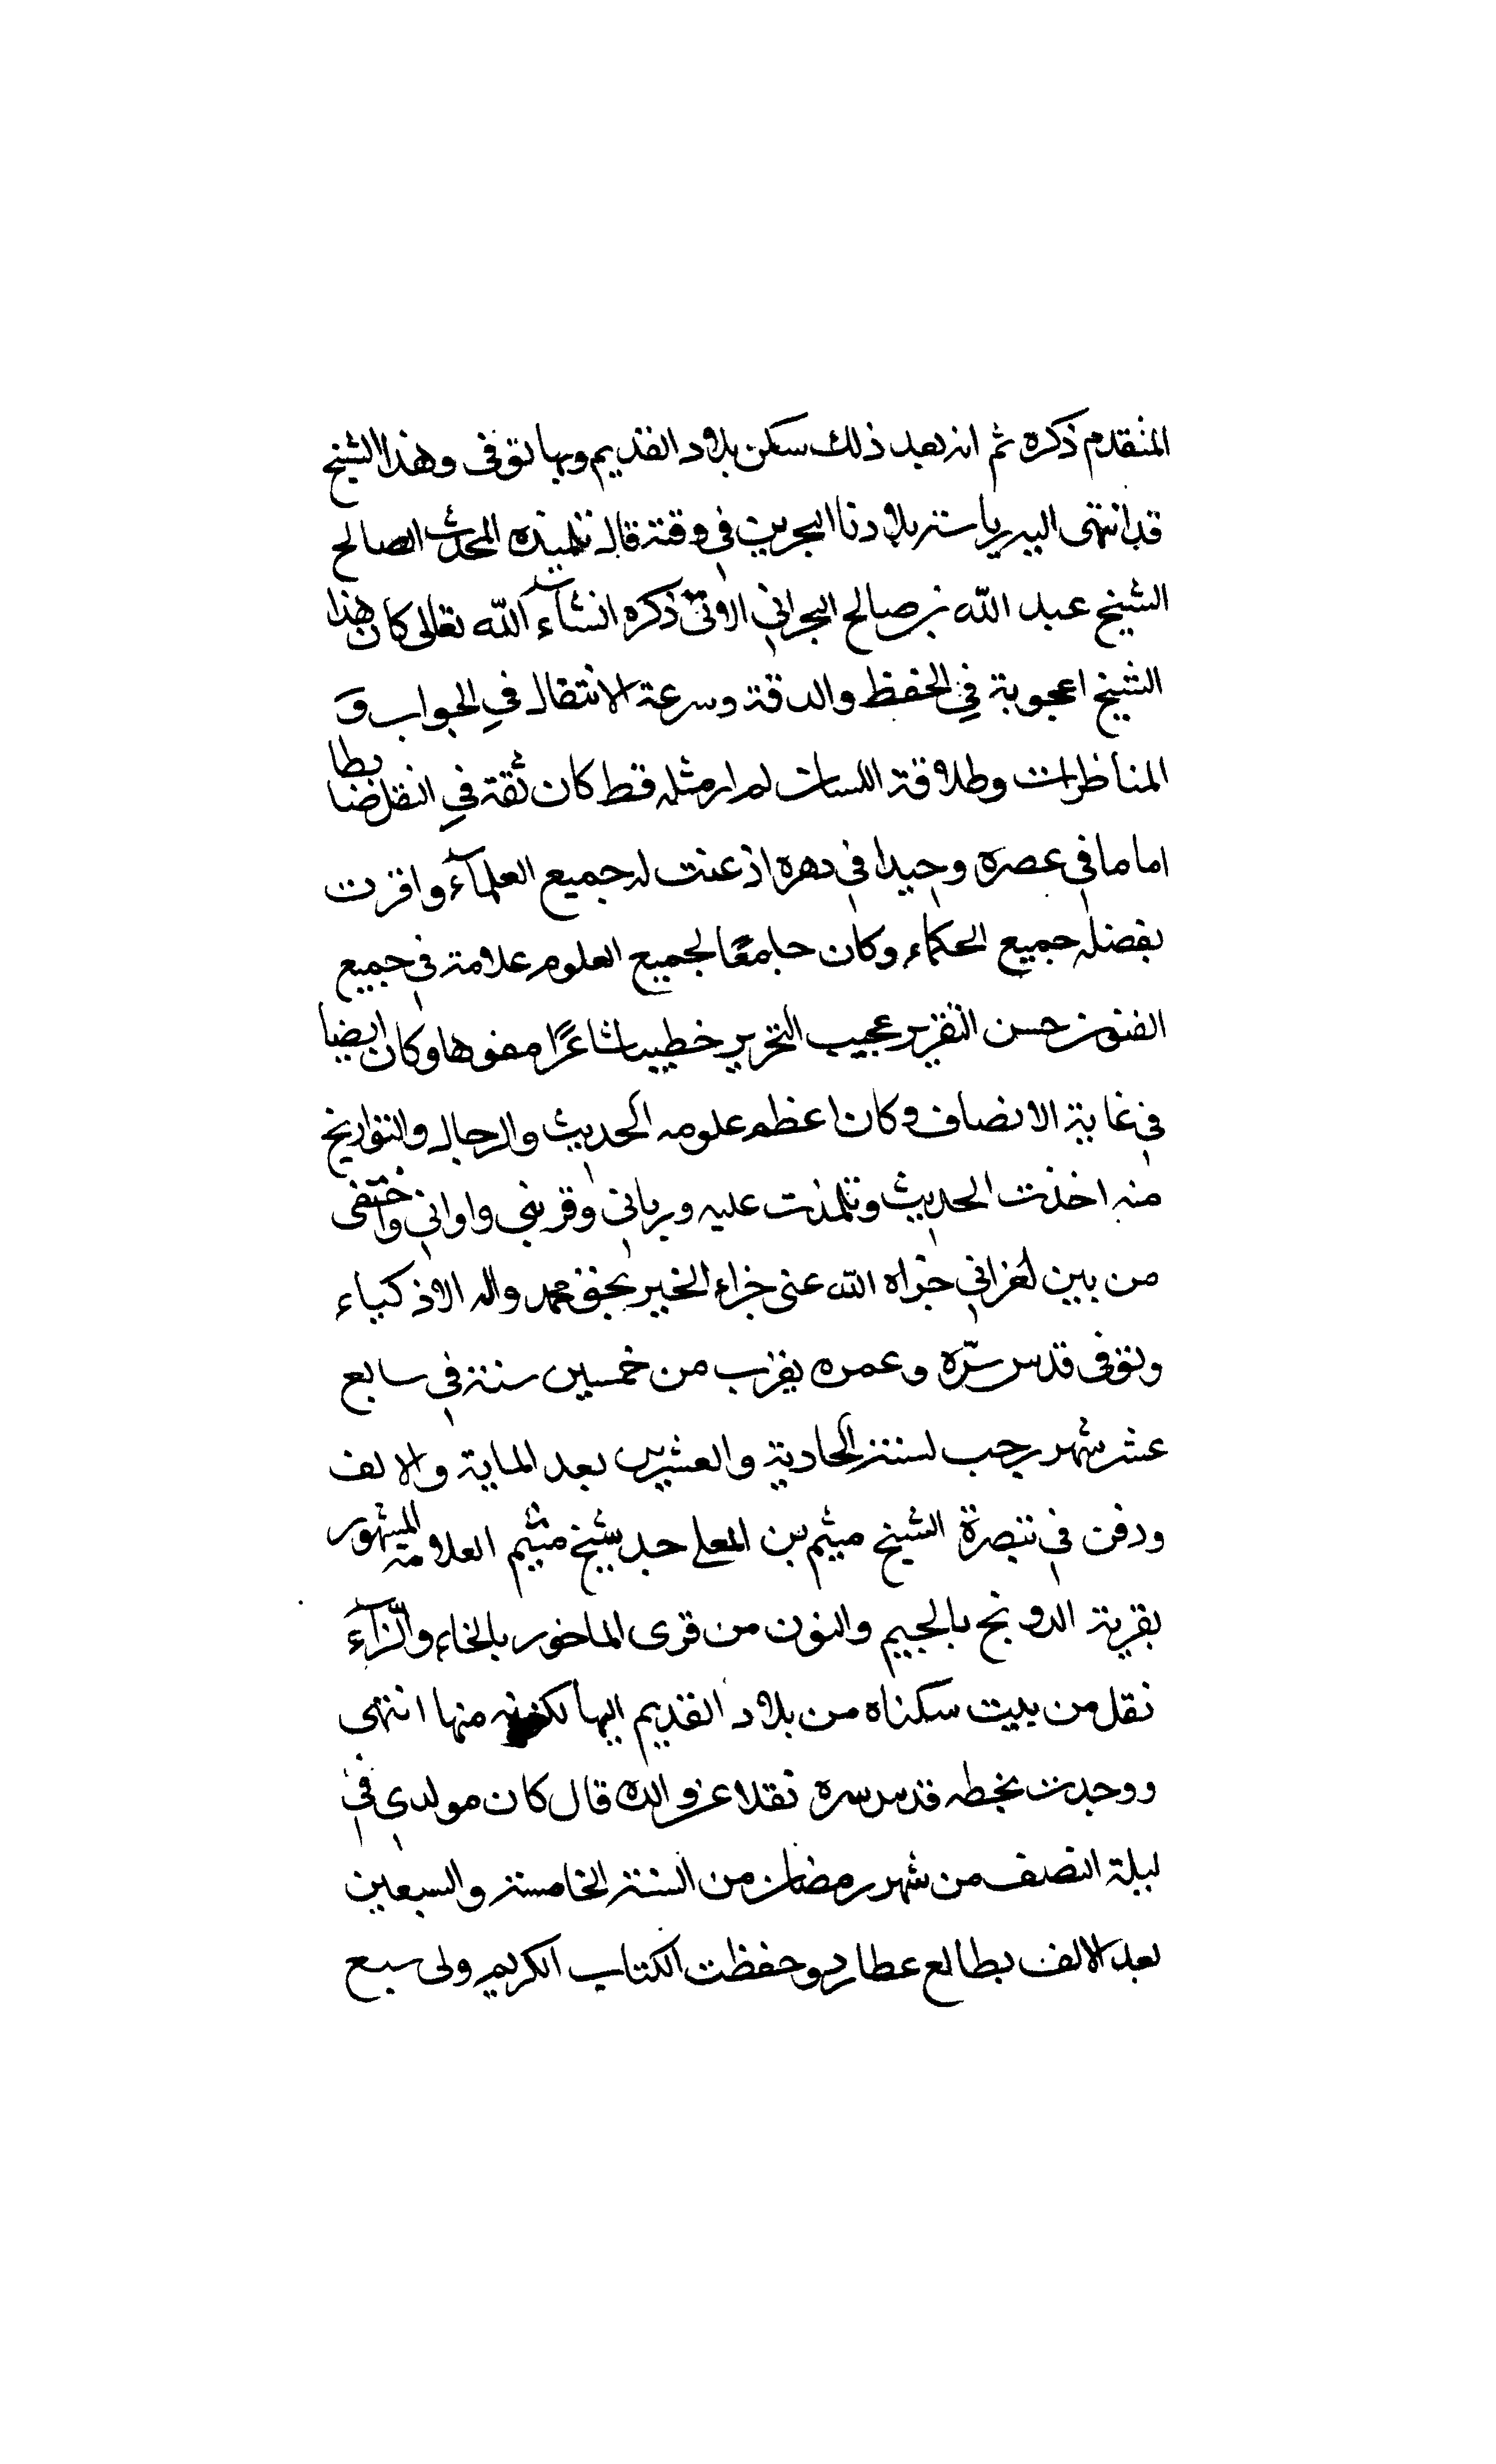 المتقدم ذكره ثم انه بعد ذلك سكن بلاد القديم وبها توفى وهذا الشيخ
قد انتهى اليه رياسة بلادنا البحرين في وقته قال تلميذه المحدث الصالح
الشيخ عبد الله بن صالح البحراني الاتى ذكره انشآء الله تعالى كان هذا
الشيخ اعجوبة في الحفظ والدقة وسرعة الانتقال في الجواب و
المناظرات وطلاقة اللسان لم ار مثله قط كان ثقة في النقل ضابطا
اماما في عصره وحيدا في دهره اذعنت له جميع العلمآء واقرت
بفضله جميع الحكماء وكان جامعًا لجميع العلوم علامة في جميع
الفنون حسن التقرير عجيب التحرير خطيبا شاعرًا مفوها وكان ايضا
في غاية الانصاف وكان اعظم علومه الحديث والرجال والتواريخ
منه اخذت الحديث وتلمذت عليه ورباني وقربني واواني واختصى
من بين اقراني جزاه الله عنى جزاء الخير بحق محمد واله الاذكياء
وتوفى قدس سّره وعمره يقرب من خمسين سنة في سابع
عشر شهر رجب لسنة الحادية والعشرين بعد الماية والالف
ودفن في مقبرة الشيخ ميثم بن المعلى جد شيخ ميثم العلامة المشهور
بقرية الدونج بالجيم والنون من قرى الماحوز بالحاء والزّآء
نقل من بيت سكناه من بلاد القديم اليها لكونه منها انتهى
ووجدت بخطه قدس سره نقلا عن والده قال كان مولدي في
ليلة النصف من شهر رمضان من السنة الخامسة والسبعين
بعد الالف بطالع عطارد وحفظت الكتاب الكريم ولى سبع